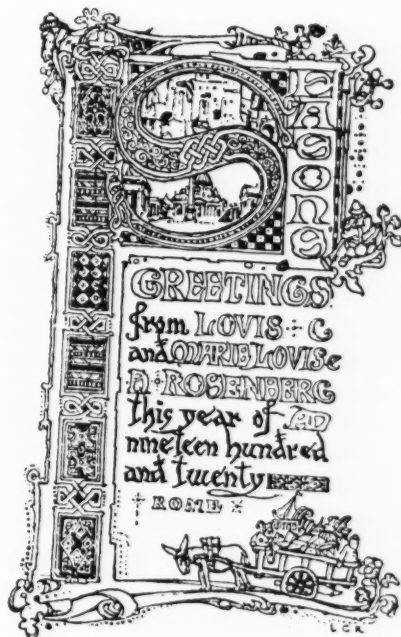 SEASONS
GREETINGS
from LOVIS · C
and MARIE LOVISE
H · ROSENBERG
this year of AD
nineteen hundred
and twenty
ROME
L C R